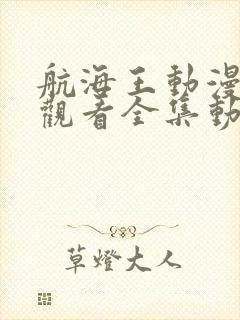 航海王動漫
觀看全集動
草燈大人